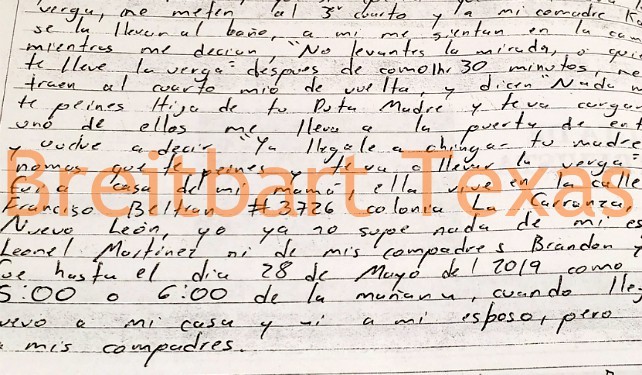 verga, me meten al 3er cuarto y a mi comadre
se la llevan al baño, a mi me sientan en la cam
mientras me decian, "No levantes la mirada, o quie
te lleve la verga" despues de como 1hr 30 minutos, me
traen al cuarto mio de vuelta, y dicen "Nada m
te peines Hija de tu Puta Madre y te va carga
uno de ellos me lleva a la puerta de ent
y vuelve a decir "Ya llegale a chingar tu madre
nomas que te peines y te va a llevar la verga"
fui a casa de mi mamá, ella vive en la calle
Francisco Beltran #3726 colonia La Carranza,
Nuevo León, yo ya no supe nada de mi es
Leonel Martinez ni de mis compadres Brandon y
fue hasta el dia 28 de Mayo del 2019 como
5:00 o 6:00 de la mañana, cuando lle
uevo a mi casa y vi a mi esposo, pero
a mis compadres.
Breitbart Texas